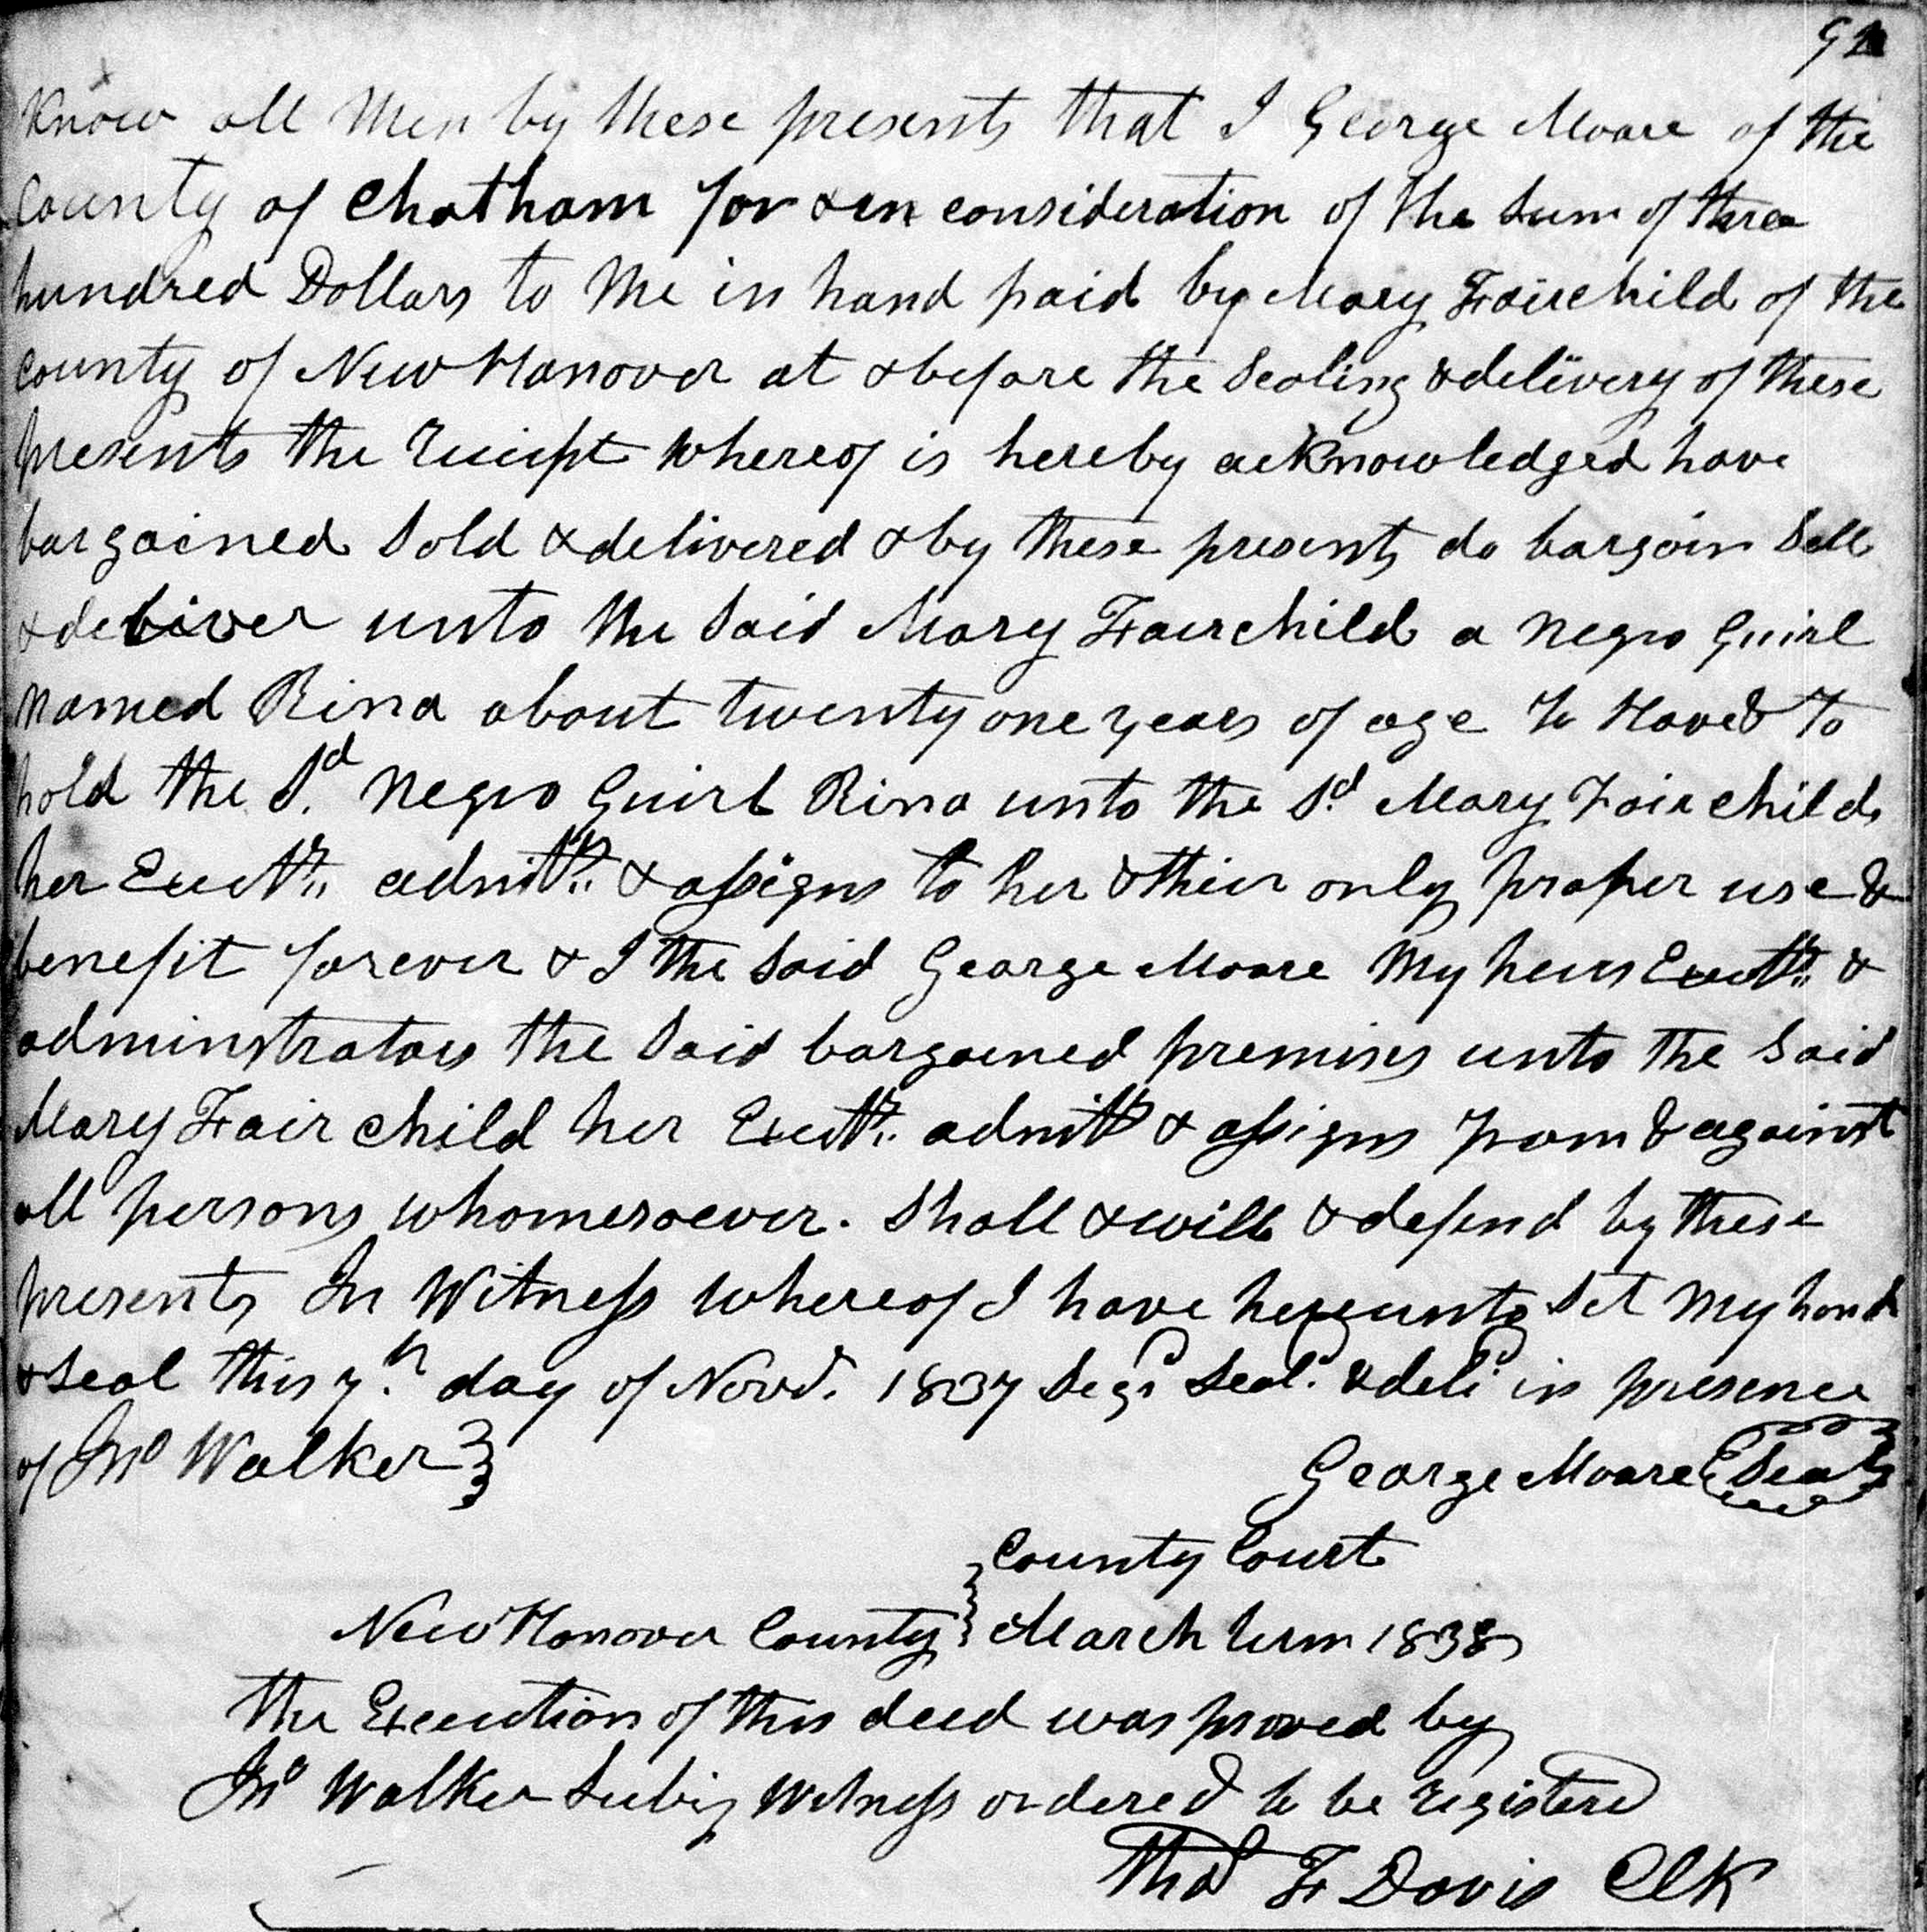 Know all Men by these presents that I George Moore of the
County of Chatham for & in consideration of the Sum of three
hundred Dollars to Me in hand paid by Mary Fairchild of the
County of New Hanover at & before the Sealing & delivery of these
presents the receipt whereof is hereby acknowledged have
bargained Sold & delivered & by these presents do bargain Sell
& deliver unto the Said Mary Fairchild a Negro Guirl
Named Rina about twenty one years of age To Have & To
hold the Sd. Negro Guirl Rina unto the Sd. Mary Fairchild
her Exectrs. admtrs. & assigns to her & their only proper use &
benefit forever & I the Said George Moore My heirs Exectrs. &
adminstrators the Said bargained premises unto the Said
Mary Fairchild her Exectrs. admtrs & assigns from & against
all persons whomesoever. Shall & will & defend by these
presents In Witness whereof I have hereunto Set My hand
& Seal this 7th day of Novr. 1837 Segd Seald. & deld in presence
of Jno Walker George Moore Seal
County Court
New Hanover County March term 1838
the Execution of this deed was proved by
Jno Walker Subig Witness ordered to be registered
Thos F Davis Clk